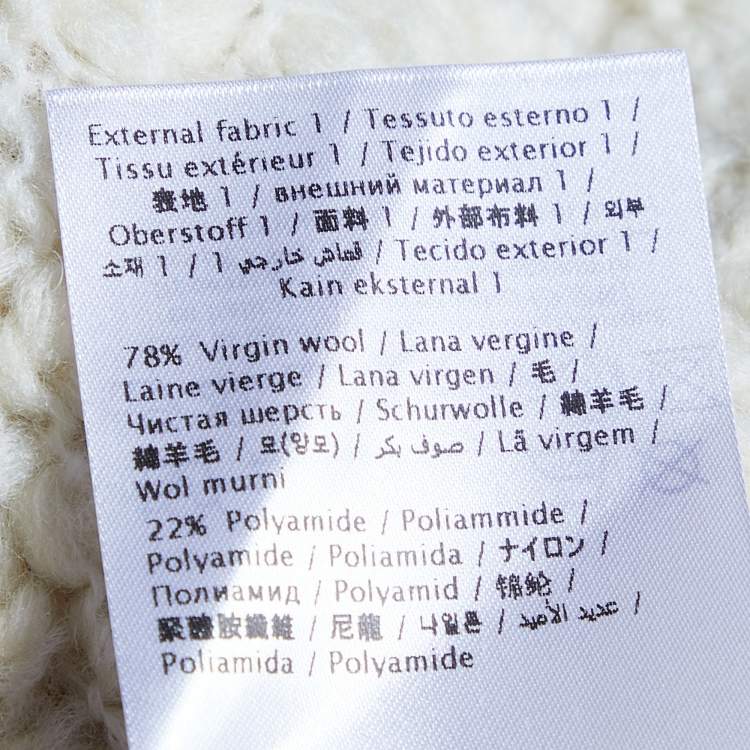 External fabric 1 / Tessuto esterno 1 /
Tissu extérieur 1 / Tejido exterior 1 /
表地 1 / внешний материал 1 /
Oberstoff 1 / 面料 1 / 外部布料 1 / 외부
소재 1 / قماش خارجي 1 / Tecido exterior 1 /
Kain eksternal 1
78% Virgin wool / Lana vergine /
Laine vierge / Lana virgen / 毛 /
Чистая шерсть / Schurwolle / 綿羊毛 /
綿羊毛 / 모(양모) / صوف بكر / Lã virgem /
Wol murni
22% Polyamide / Poliammide /
Polyamide / Poliamida / ナイロン /
Полиамид / Polyamid / 锦纶 /
聚醯胺纖維 / 尼龍 / 나일론 / عديد الأميد /
Poliamida / Polyamide